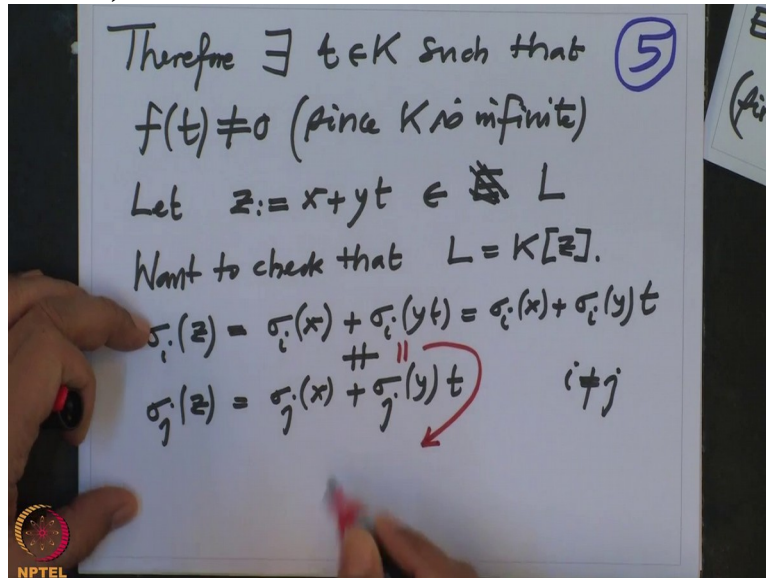 Therefore ∃ t∈K such that
⑤
f(t) ≠ 0 (since K is infinite)
Let z := x+yt ∈ L
Want to check that L = K[z].
σᵢ(z) = σᵢ(x) + σᵢ(yt) = σᵢ(x) + σᵢ(y)t
≠ =
σⱼ(z) = σⱼ(x) + σⱼ(y)t i≠j
NPTEL